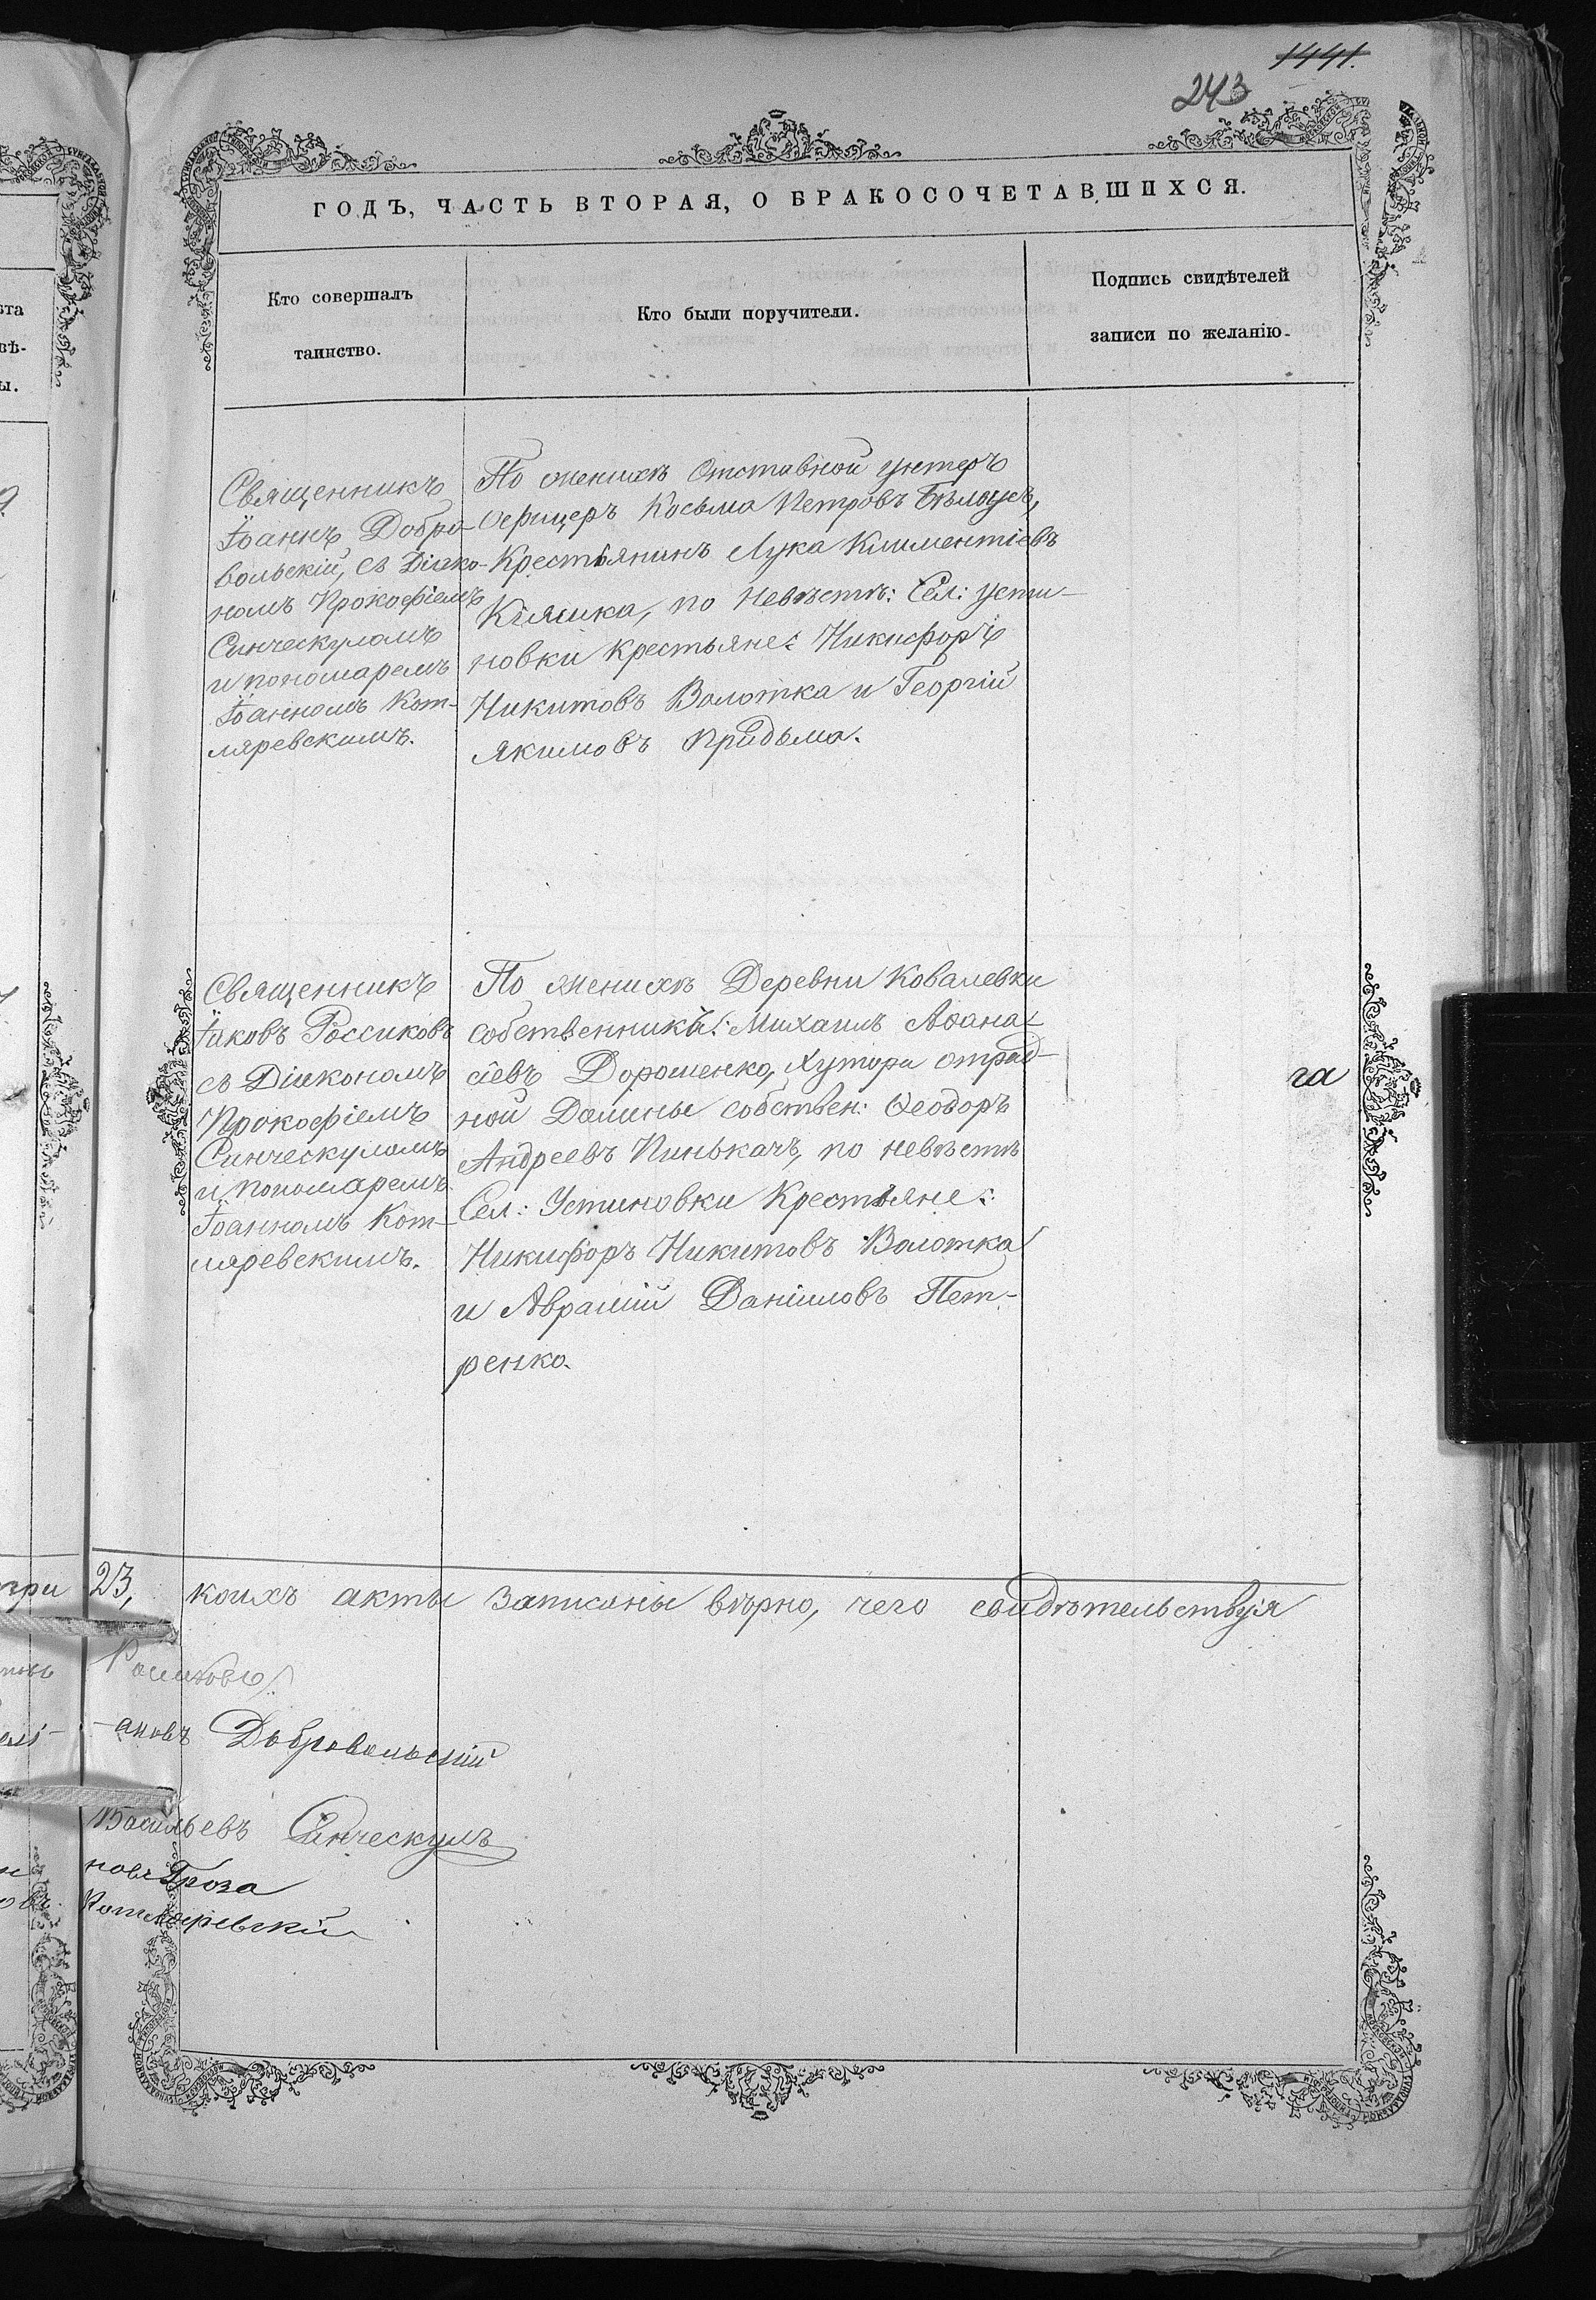 1441.
243
ГОДЪ, ЧАСТЬ ВТОРАЯ, О БРАКОСОЧЕТАВШИХСЯ.
Кто совершалъ
таинство.
Кто были поручители.
Подпись свидѣтелей
записи по желанію.
Священникъ
Іоаннъ Добро-
вольскій, съ Діако-
номъ Прокофіемъ
Синческуломъ
и пономаремъ
Іоанномъ Кот-
ляревскимъ.
По женихѣ Отставной унтеръ
Офицеръ Косьма Петровъ Бѣлоусъ,
Крестьянинъ Лука Климентіевъ
Кіяшка, по Невѣстѣ: Сел: Усти-
новки Крестьяне: Никифоръ
Никитовъ Волотка и Георгій
Якимовъ Придьма.
Священникъ
Іаковъ Россиковъ
съ Діакономъ
Прокофіемъ
Синческуломъ
и пономаремъ
Іоанномъ Кот-
ляревскимъ.
По женихѣ Деревни Ковалевки
собственникъ: Михаилъ Аѳана-
сіевъ Дорошенко, Хутора Отрад-
ной Долины собствен: Ѳеодоръ
Андреевъ Пинькачъ, по невѣстѣ
Сел: Устиновки Крестьяне:
Никифоръ Никитовъ Волотка
и Аврамій Даніиловъ Пет-
ренко.
га
при 23, коихъ акты записаны вѣрно, чего свидѣтельствуя
Росиковъ
-ановъ Добровольскій
Васильевъ Синческулъ
новъ Гроза
Котляревскій